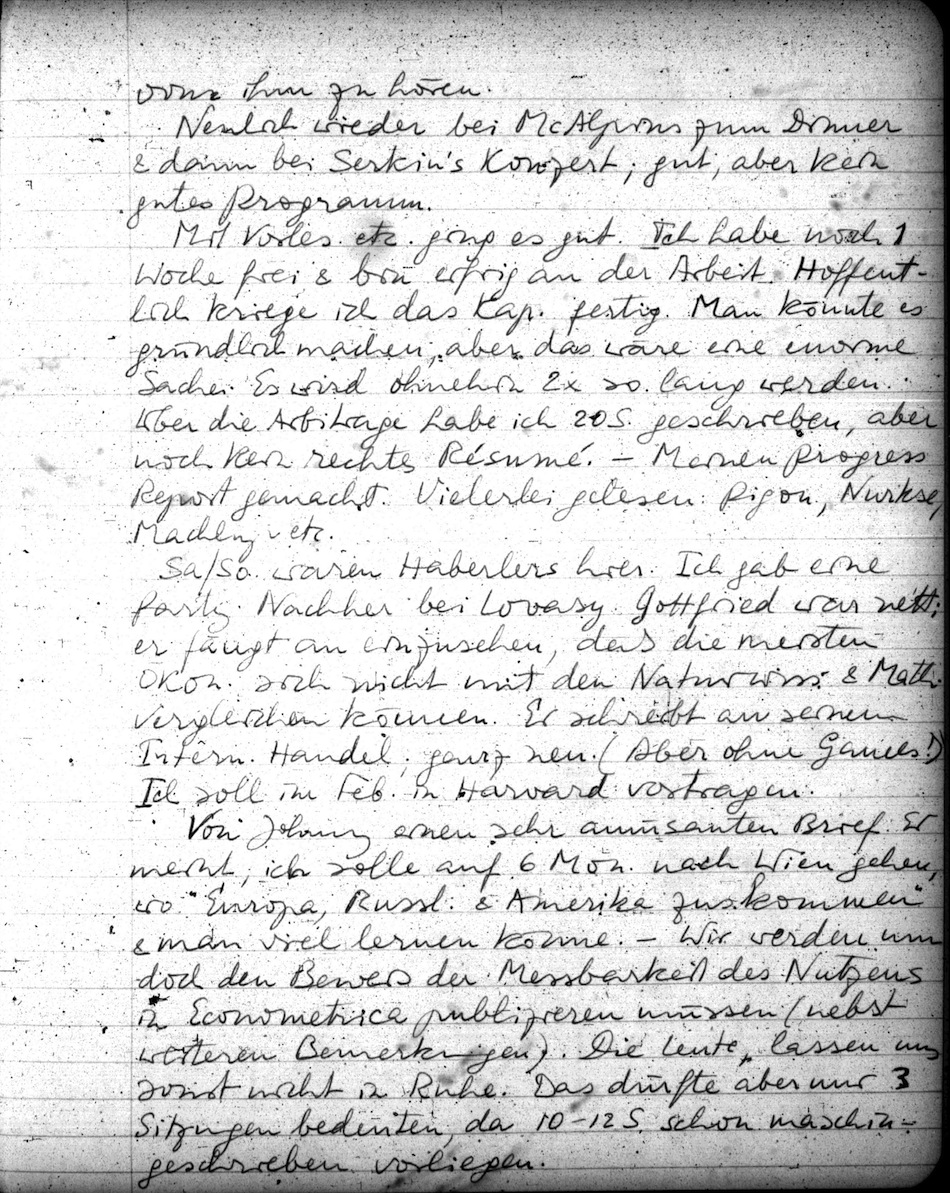 von ihm zu hören.
Neulich wieder bei McAlpins zum Dinner
& dann bei Serkin's Konzert; gut, aber kein
gutes Programm.
Mit Vorles. etc. ging es gut. Ich habe noch 1
Woche frei & bin eifrig an der Arbeit. Hoffent-
lich kriege ich das Kap. fertig. Man könnte es
gründlich machen, aber das wäre eine enorme
Sache. Es wird ohnehin 2x so lang werden.
Über die Arbitrage habe ich 20 S. geschrieben, aber
noch kein rechtes Résumé. – Meinen Progress
Report gemacht. Vielerlei gelesen: Pigou, Nurkse,
Machlup etc.
Sa/So. waren Haberlers hier. Ich gab eine
Party. Nachher bei Lovasy. Gottfried war nett;
er fängt an einzusehen, daß die meisten
Ökon. sich nicht mit den Naturwiss. & Math.
vergleichen können. Er schreibt an seinem
Intern. Handel, ganz neu. (Aber ohne Games!)
Ich soll im Feb. in Harvard vortragen.
Von Johnny einen sehr amüsanten Brief. Er
meint, ich solle auf 6 Mon. nach Wien gehen,
wo "Europa, Russl. & Amerika zus.kommen"
& man viel lernen könne. – Wir werden nun
doch den Beweis der Messbarkeit des Nutzens
in Econometrica publizieren müssen (nebst
weiteren Bemerkungen). Die Leute lassen uns
sonst nicht in Ruhe. Das dürfte aber nur 3
Sitzungen bedeuten, da 10-12 S. schon maschin-
geschrieben vorliegen.